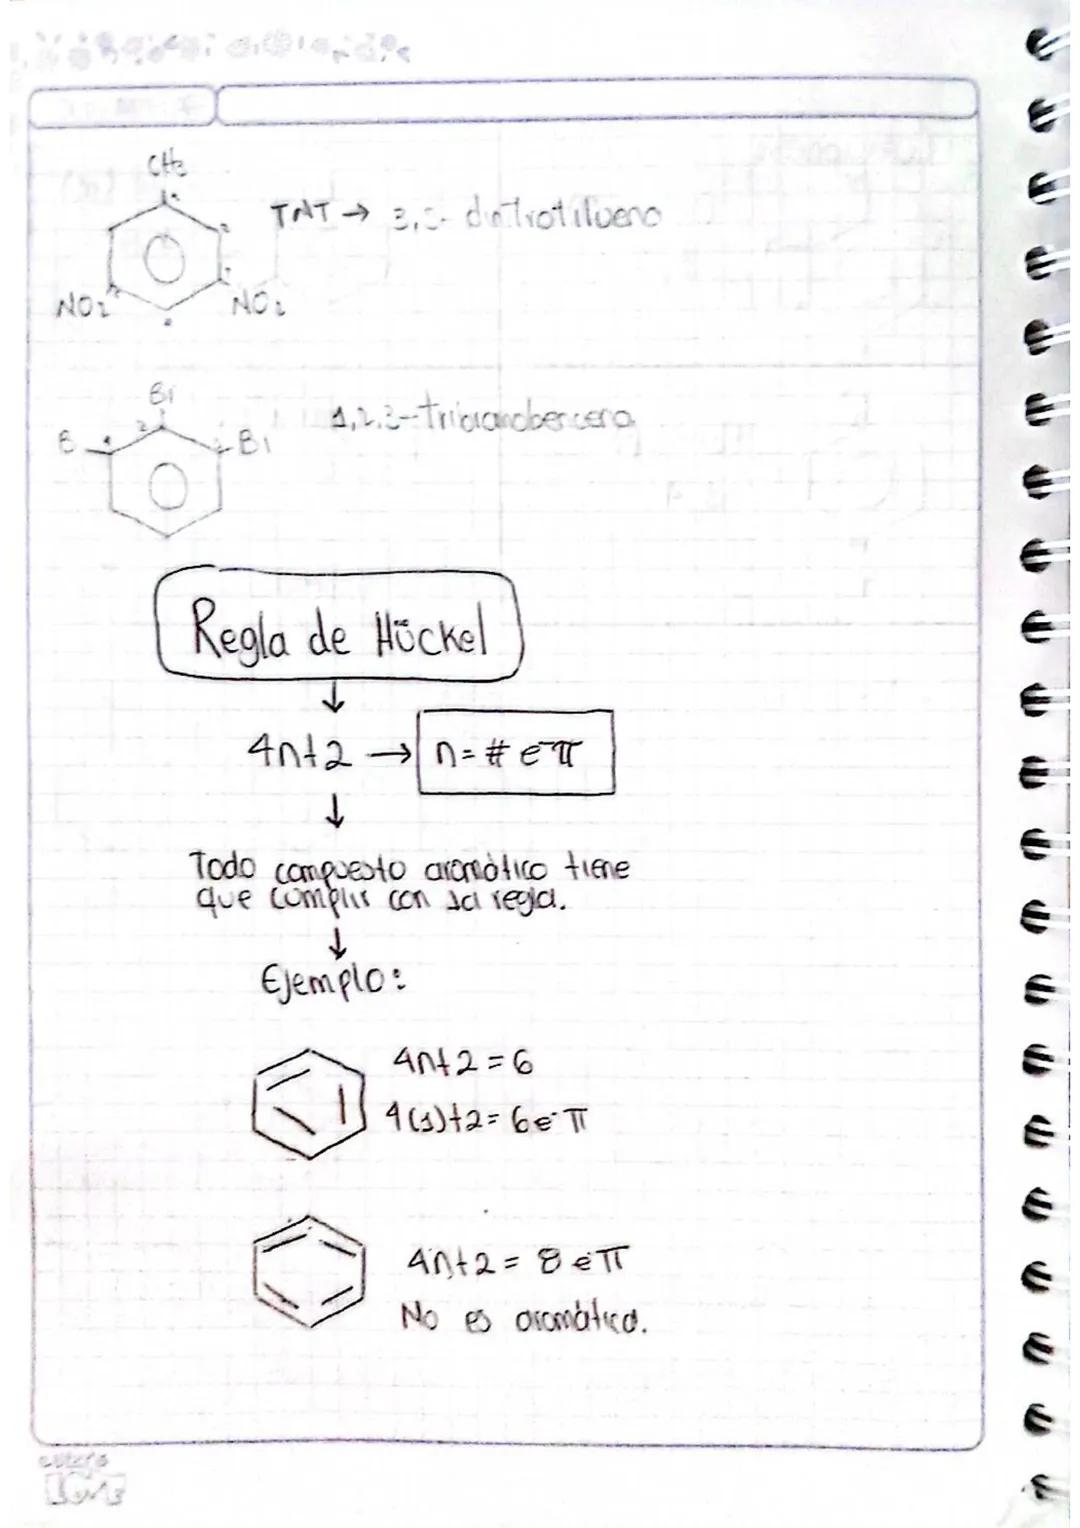 CH3
1
2
TNT → 3,5- dinitrotilueno
NO2
NO2
Br
1,2,3-tribromobenceno
B
1
2
3
Br
Regla de Hückel
↓
4n+2 → n= # e-π
↓
Todo compuesto aromático tiene
que cumplir con la regla.
↓
Ejemplo:
4n+2 = 6
4(1)+2= 6 e- π
4n+2 = 8 e- π
No es aromático.
LOVE